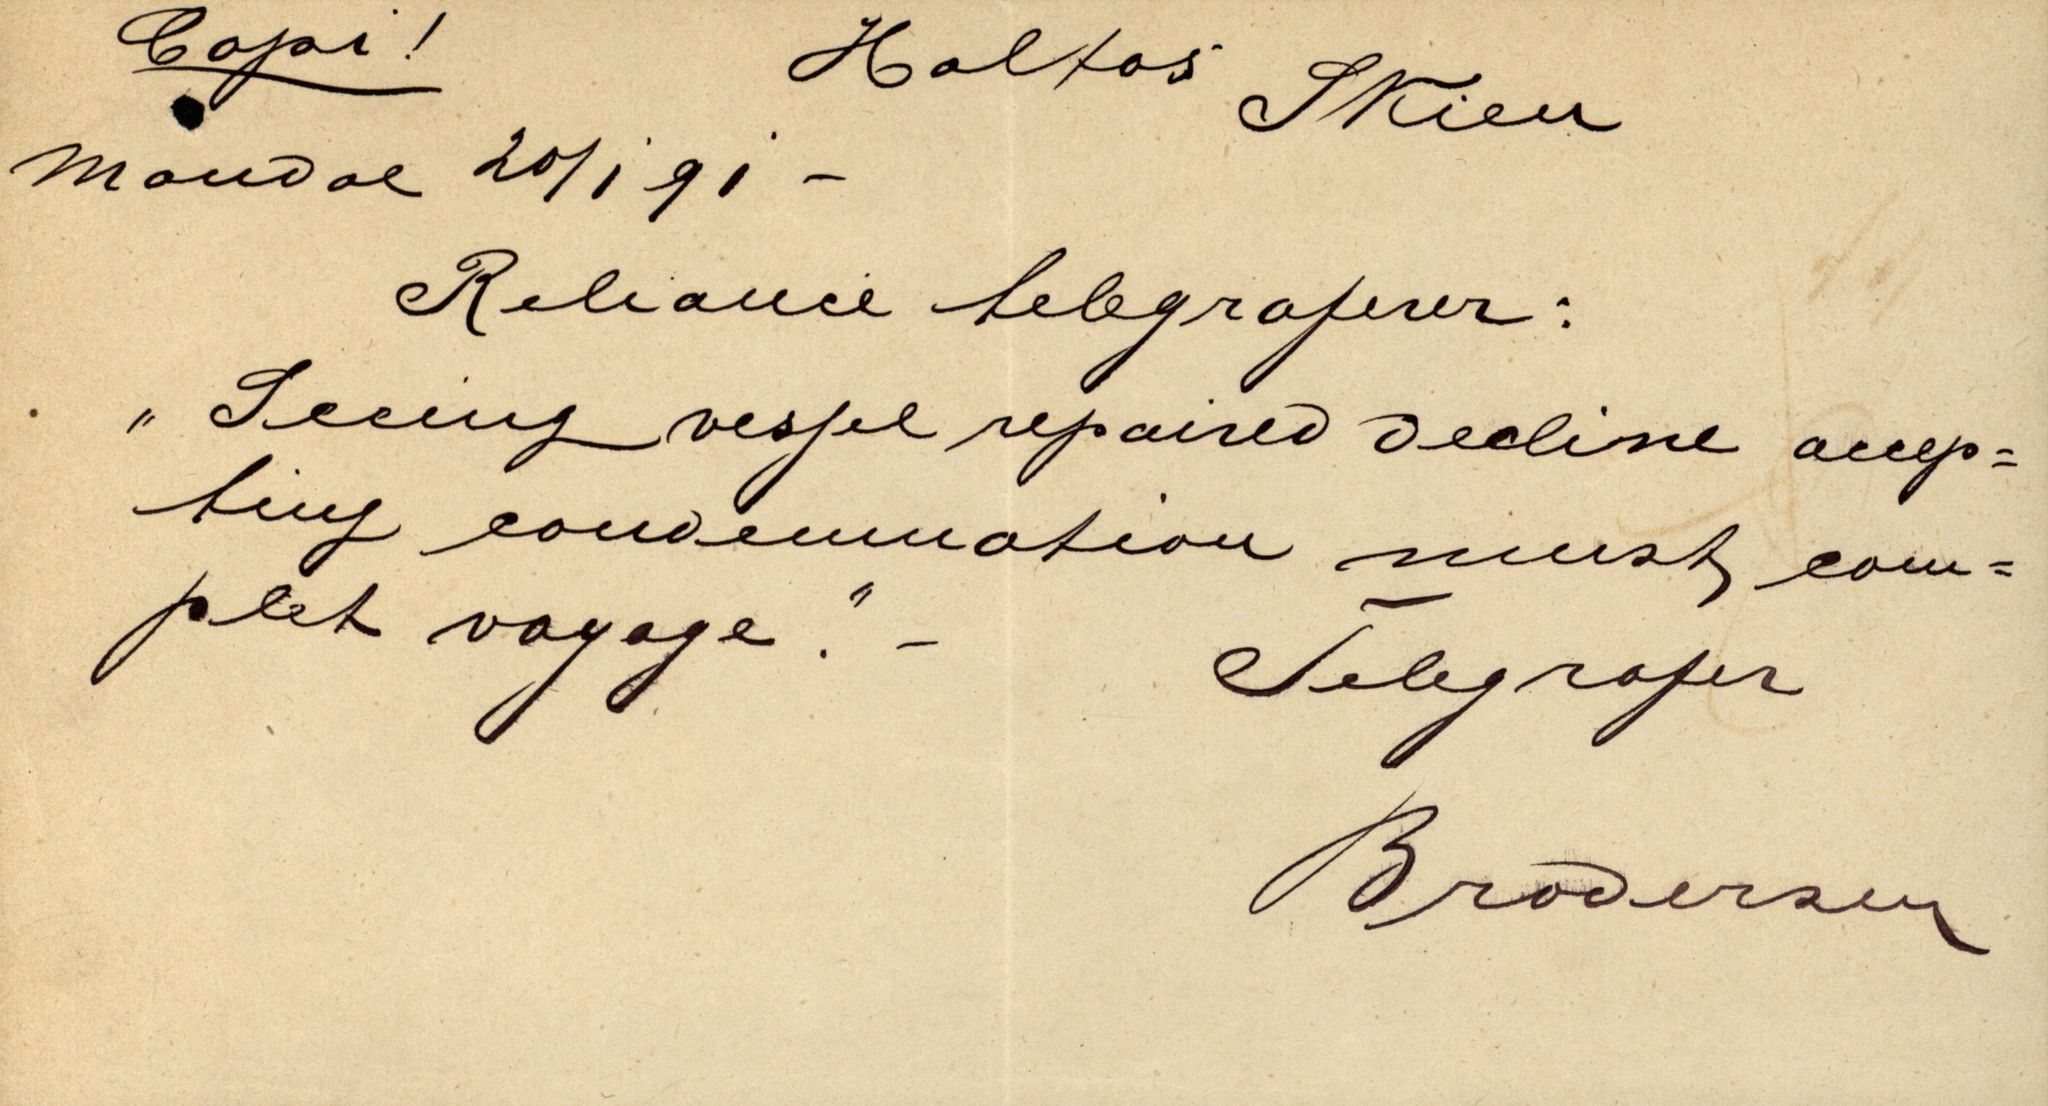 Copi!
Holtas Skien
Mandal 20/1 91 –
Reliance telegraferer:
"Seeing vessel repaired decline accep=
ting condemnation must com=
plet voyage." –
Telegrafer
Brodersen